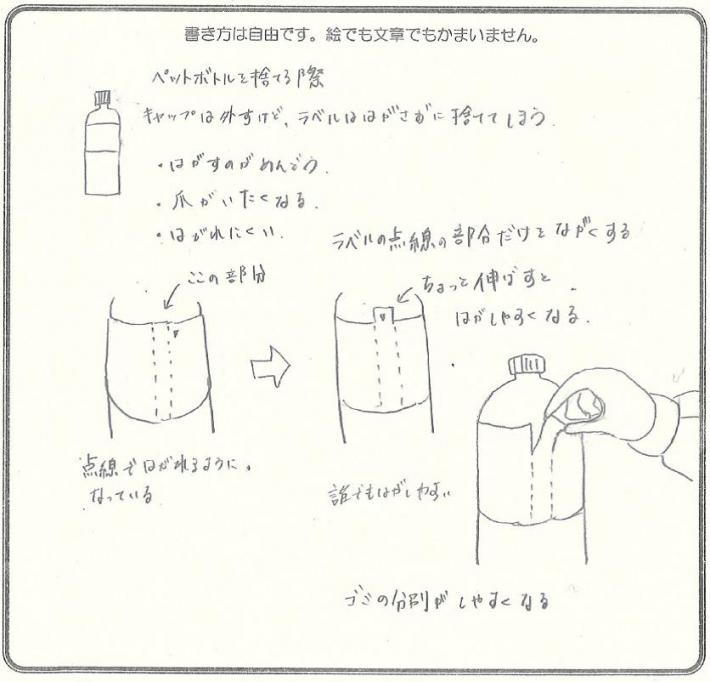 書き方は自由です。絵でも文章でもかまいません。
ペットボトルを捨てる際
キャップは外すけど、ラベルははがさずに捨ててしまう
・はがすのがめんどう.
・爪がいたくなる.
・はがれにくい.
ラベルの点線の部分だけをながくする
ここの部分
ちょっと伸ばすと
はがしやすくなる.
点線ではがれるように
なっている
誰でもはがしやすい
ゴミの分別がしやすくなる